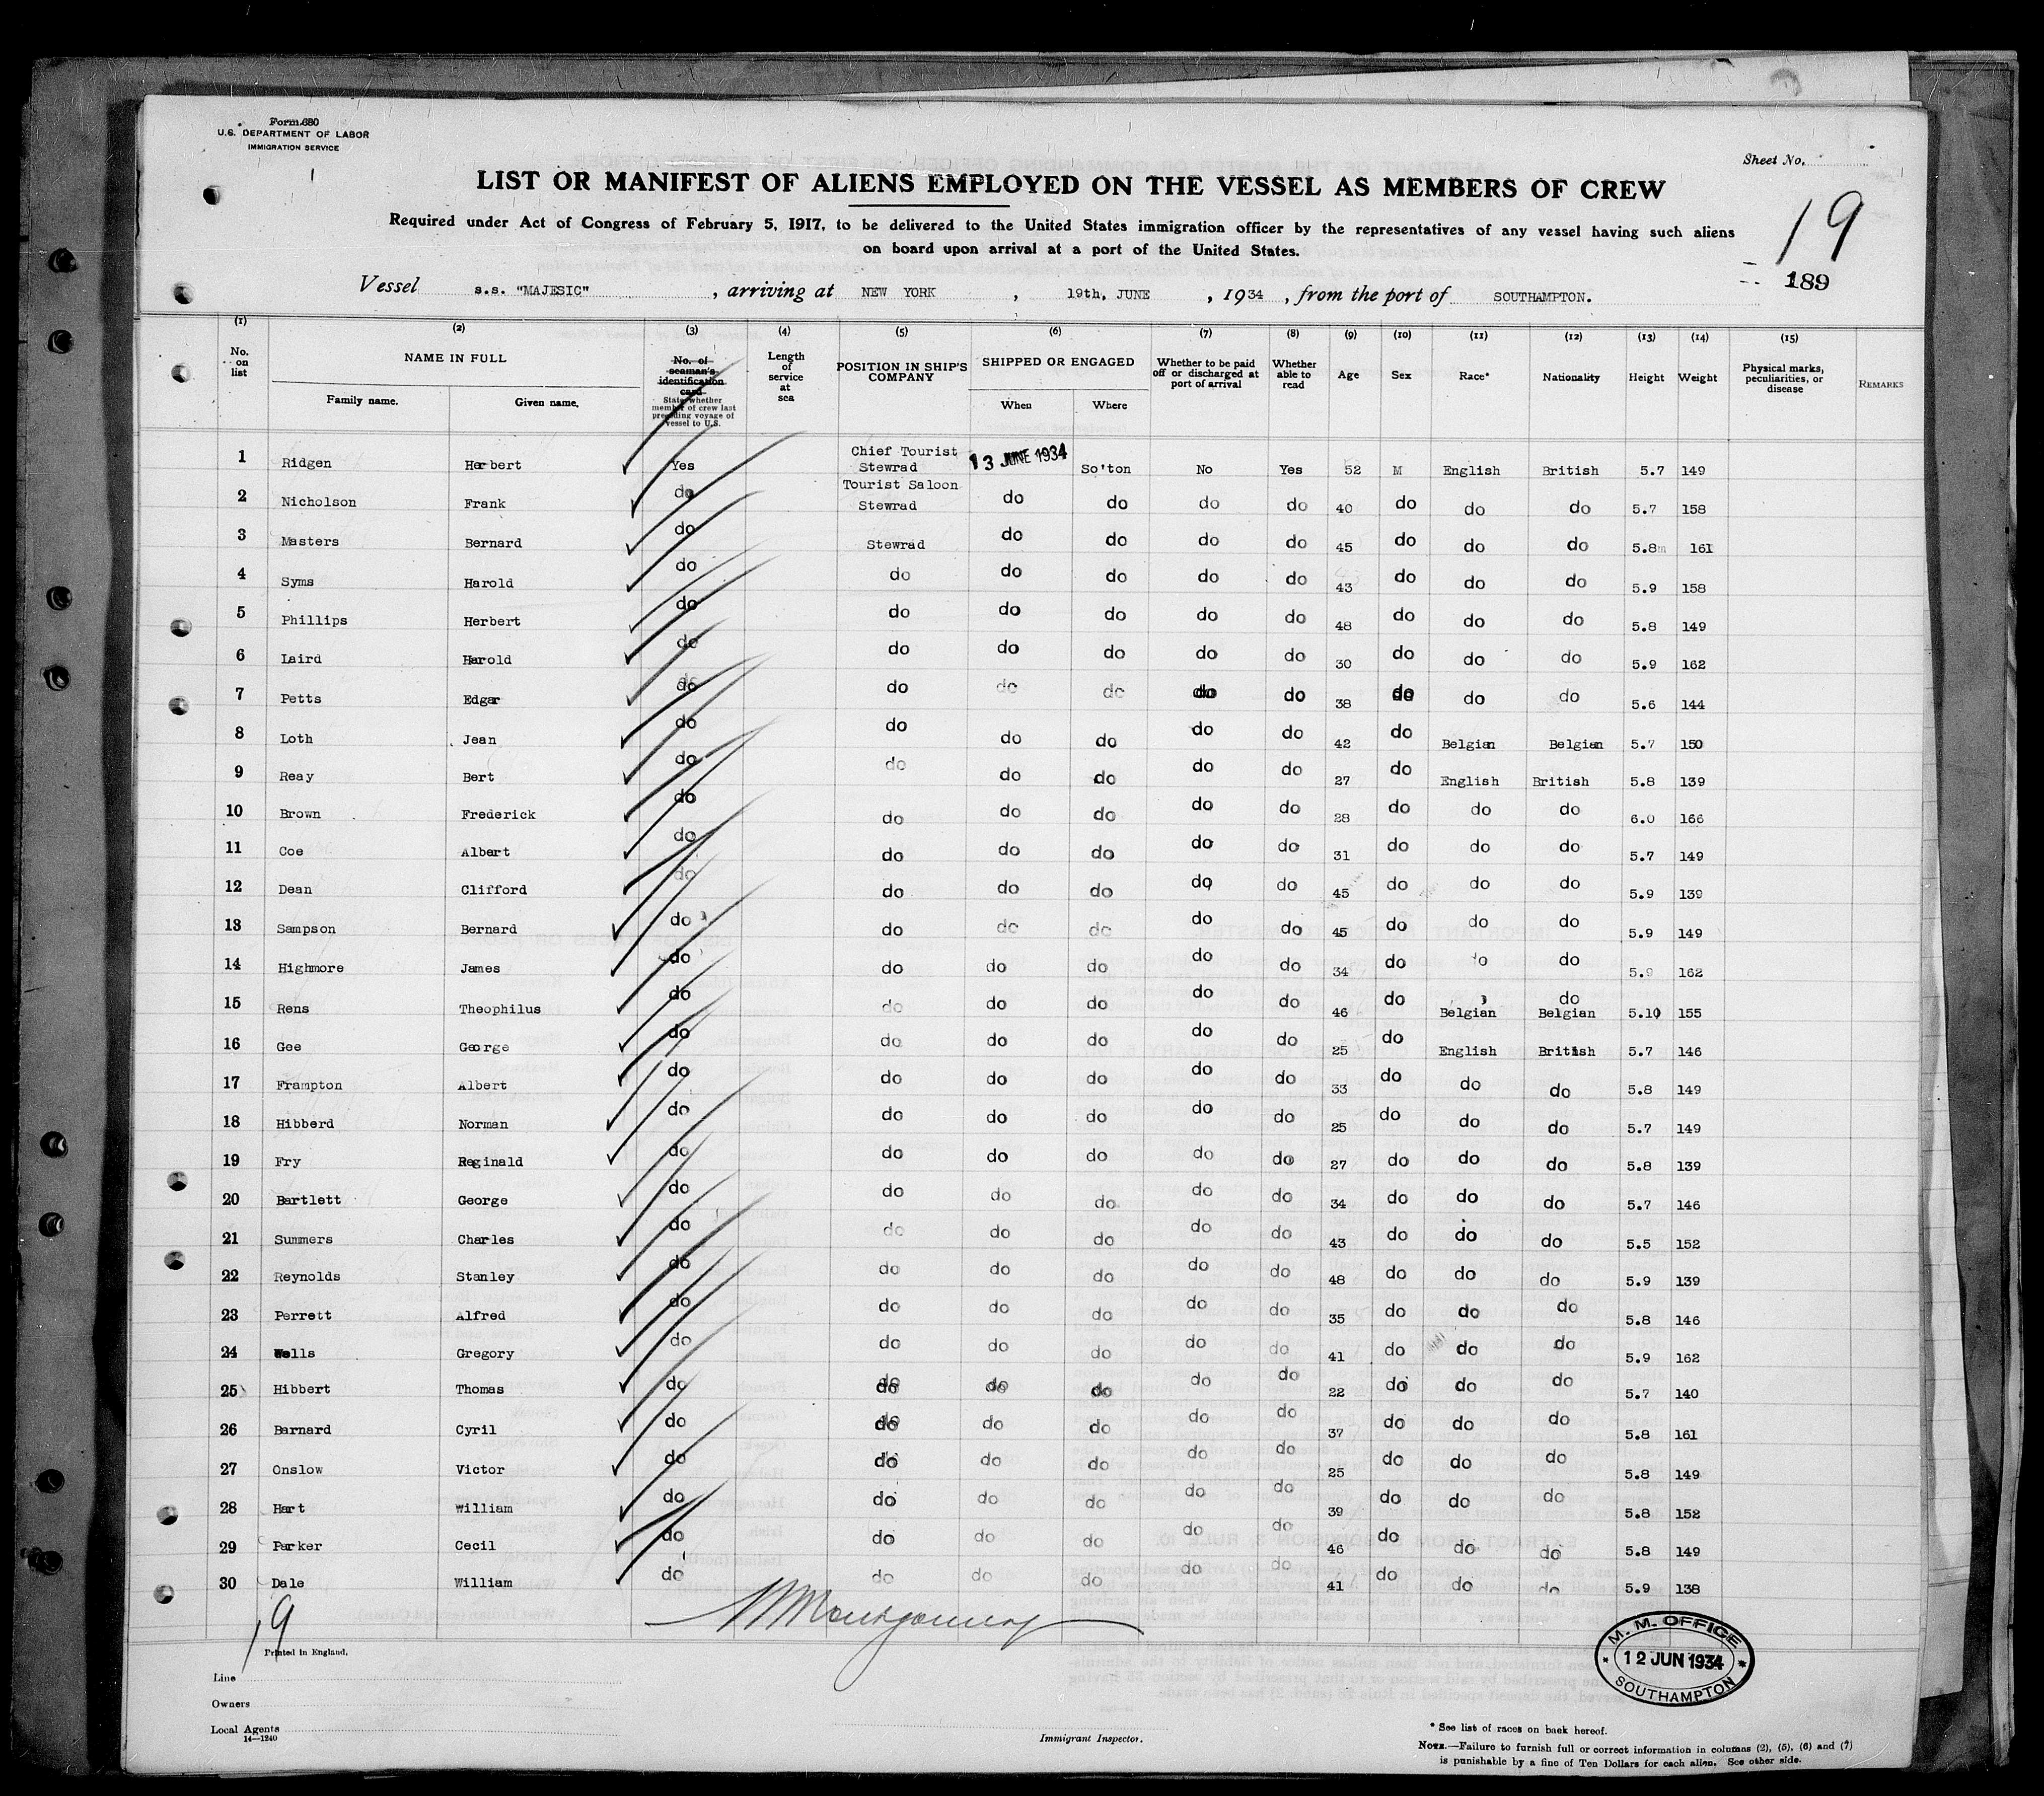 Form 680
U.S. DEPARTMENT OF LABOR
IMMIGRATION SERVICE
Sheet No.
LIST OR MANIFEST OF ALIENS EMPLOYED ON THE VESSEL AS MEMBERS OF CREW
19
Required under Act of Congress of February 5, 1917, to be delivered to the United States immigration officer by the representatives of any vessel having such aliens
on board upon arrival at a port of the United States.
189
Vessel s.s. "MAJESIC", arriving at NEW YORK, 19th, JUNE, 1934, from the port of SOUTHAMPTON.
(1) (2) (3) (4) (5) (6) (7) (8) (9) (10) (11) (12) (13) (14) (15)
No. on list NAME IN FULL Family name. Given name. No. of seaman's identification card State whether member of crew last preceding voyage of vessel to U.S. Length of service at sea POSITION IN SHIP'S COMPANY SHIPPED OR ENGAGED When Where Whether to be paid off or discharged at port of arrival Whether able to read Age Sex Race* Nationality Height Weight Physical marks, peculiarities, or disease REMARKS
1 Ridgen Herbert Yes Chief Tourist Stewrad 13 JUNE 1934 So'ton No Yes 52 M English British 5.7 149
2 Nicholson Frank do Tourist Saloon Stewrad do do do do 40 do do do 5.7 158
3 Masters Bernard do Stewrad do do do do 45 do do do 5.8 161
4 Syms Harold do do do do do do 43 do do do 5.9 158
5 Phillips Herbert do do do do do do 48 do do do 5.8 149
6 Laird Harold do do do do do do 30 do do do 5.9 162
7 Petts Edgar do do do do do do 38 do do do 5.6 144
8 Loth Jean do do do do do do 42 do Belgian Belgian 5.7 150
9 Reay Bert do do do do do do 27 do English British 5.8 139
10 Brown Frederick do do do do do do 28 do do do 6.0 166
11 Coe Albert do do do do do do 31 do do do 5.7 149
12 Dean Clifford do do do do do do 45 do do do 5.9 139
13 Sampson Bernard do do do do do do 45 do do do 5.9 149
14 Highmore James do do do do do do 34 do do do 5.9 162
15 Rens Theophilus do do do do do do 46 do Belgian do Belgian 5.10 155
16 Gee George do do do do do do 25 do English British 5.7 146
17 Frampton Albert do do do do do do 33 do do do 5.8 149
18 Hibberd Norman do do do do do do 25 do do do 5.7 149
19 Fry Reginald do do do do do do 27 do do do 5.8 139
20 Bartlett George do do do do do do 34 do do do 5.7 146
21 Summers Charles do do do do do do 43 do do do 5.5 152
22 Reynolds Stanley do do do do do do 48 do do do 5.9 139
23 Perrett Alfred do do do do do do 35 do do do 5.8 146
24 Wells Gregory do do do do do do 41 do do do 5.9 162
25 Hibbert Thomas do do do do do do 22 do do do 5.7 140
26 Barnard Cyril do do do do do do 37 do do do 5.8 161
27 Onslow Victor do do do do do do 25 do do do 5.8 149
28 Hart William do do do do do do 39 do do do 5.8 152
29 Parker Cecil do do do do do do 46 do do do 5.8 149
30 Dale William do do do do do do 41 do do do 5.9 138
19
Montgomery
M. M. OFFICE
12 JUN 1934
SOUTHAMPTON
Printed in England.
Line
Owners
Local Agents
14—1240
Immigrant Inspector.
* See list of races on back hereof.
NOTE.—Failure to furnish full or correct information in columns (2), (5), (6) and (7)
is punishable by a fine of Ten Dollars for each alien. See other side.